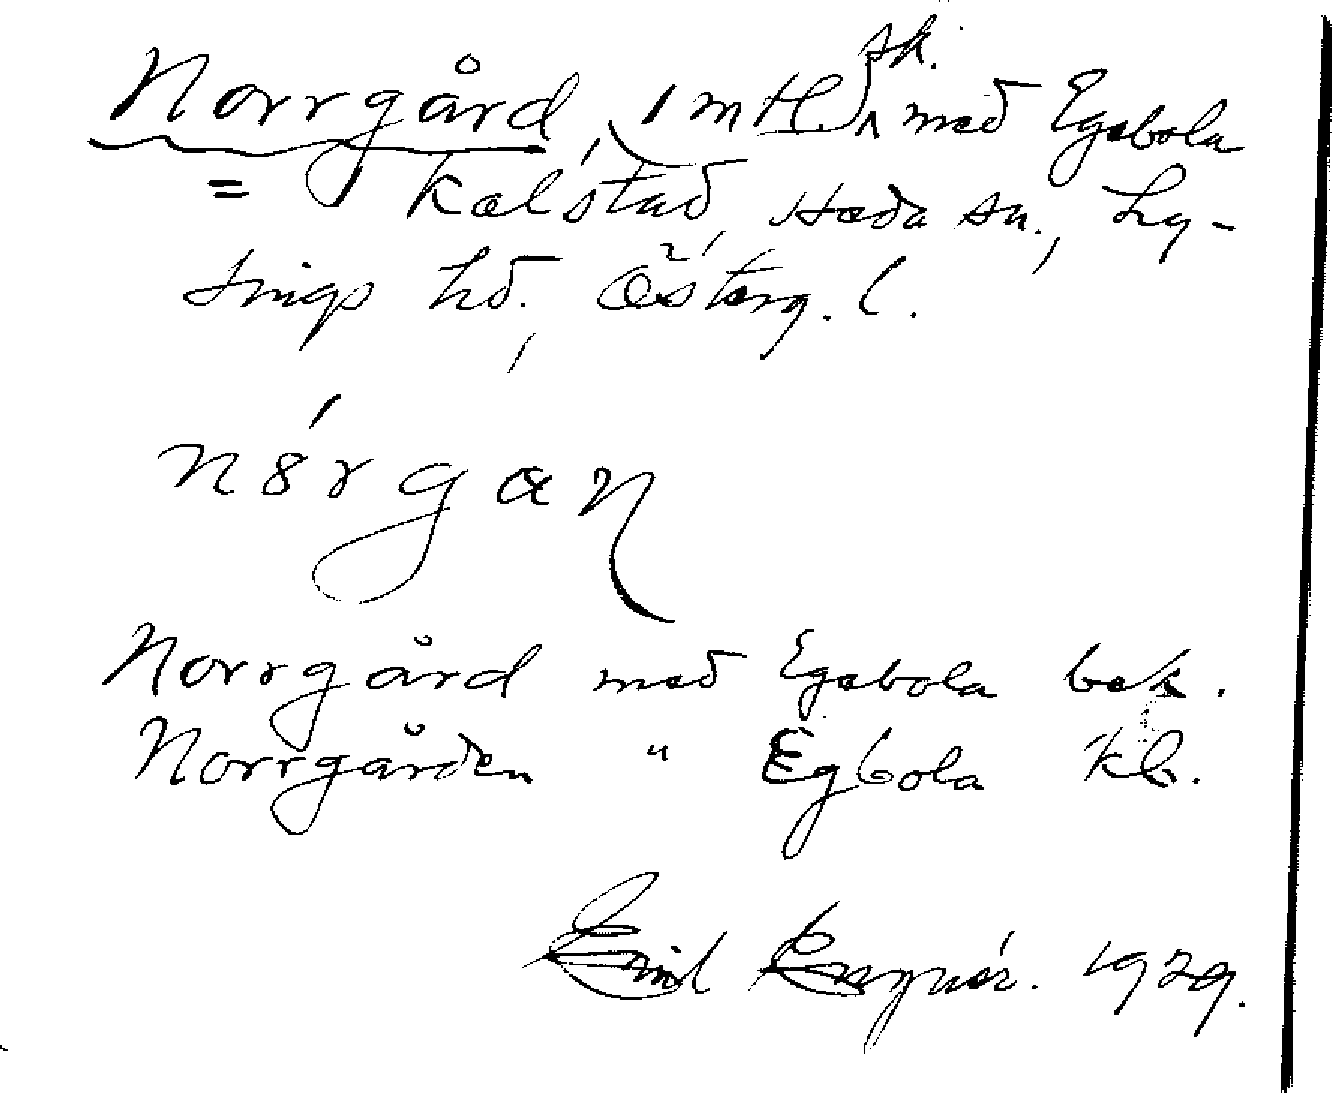 Norrgård, 1 mtl. sk. med Egebola
= Kälstad, Heda sn., Ly-
sings hd., Österg. l.
nórgaɳ
Norrgård med Egebola bek.
Norrgården " Egbola kb.
Emil 1929.